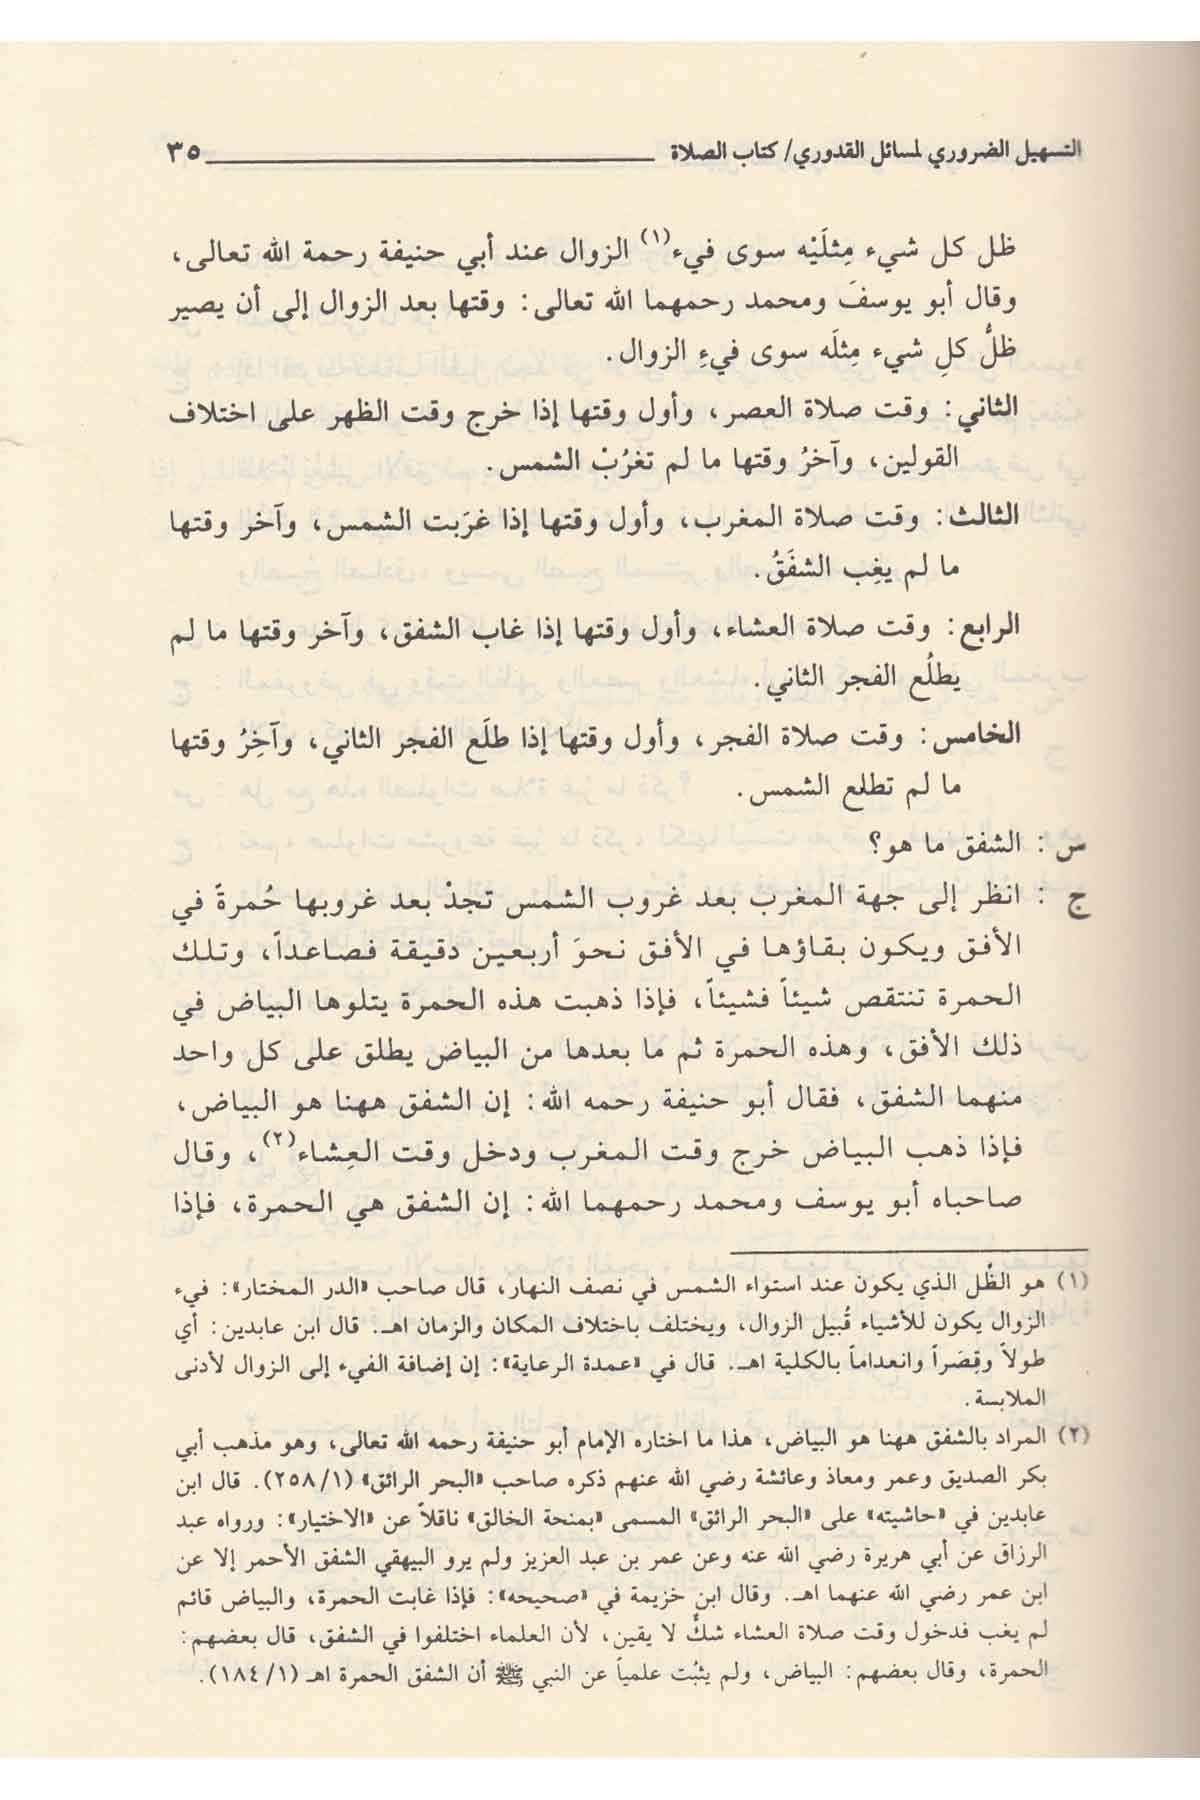 التسهيل الضروري لمسائل القدوري/ كتاب الصلاة ٣٥
ظل كل شيء مِثلَيْه سوى فيء(١) الزوال عند أبي حنيفة رحمة الله تعالى،
وقال أبو يوسفَ ومحمد رحمهما الله تعالى: وقتها بعد الزوال إلى أن يصير
ظلُّ كلِ شيء مِثلَه سوى فيءِ الزوال.
الثاني: وقت صلاة العصر، وأول وقتها إذا خرج وقت الظهر على اختلاف
القولين، وآخرُ وقتها ما لم تغرُبْ الشمس.
الثالث: وقت صلاة المغرب، وأول وقتها إذا غرَبت الشمس، وآخر وقتها
ما لم يغِب الشفَقُ.
الرابع: وقت صلاة العشاء، وأول وقتها إذا غاب الشفق، وآخر وقتها ما لم
يطلُع الفجر الثاني.
الخامس: وقت صلاة الفجر، وأول وقتها إذا طلَع الفجر الثاني، وآخِرُ وقتها
ما لم تطلع الشمس.
س: الشفق ما هو؟
ج: انظر إلى جهة المغرب بعد غروب الشمس تجدْ بعد غروبها حُمرةً في
الأفق ويكون بقاؤها في الأفق نحوَ أربعين دقيقة فصاعداً، وتلك
الحمرة تنتقص شيئاً فشيئاً، فإذا ذهبت هذه الحمرة يتلوها البياض في
ذلك الأفق، وهذه الحمرة ثم ما بعدها من البياض يطلق على كل واحد
منهما الشفق، فقال أبو حنيفة رحمه الله: إن الشفق ههنا هو البياض،
فإذا ذهب البياض خرج وقت المغرب ودخل وقت العِشاء(٢)، وقال
صاحباه أبو يوسف ومحمد رحمهما الله: إن الشفق هي الحمرة، فإذا
(١) هو الظّل الذي يكون عند استواء الشمس في نصف النهار، قال صاحب «الدر المختار»: فيء
الزوال يكون للأشياء قُبيل الزوال، ويختلف باختلاف المكان والزمان اهـ. قال ابن عابدين: أي
طولاً وقِصَراً وانعداماً بالكلية اهـ. قال في «عمدة الرعاية»: إن إضافة الفيء إلى الزوال لأدنى
الملابسة.
(٢) المراد بالشفق ههنا هو البياض، هذا ما اختاره الإمام أبو حنيفة رحمه الله تعالى، وهو مذهب أبي
بكر الصديق وعمر ومعاذ وعائشة رضي الله عنهم ذكره صاحب «البحر الرائق» (٢٥٨/١). قال ابن
عابدين في «حاشيته» على «البحر الرائق» المسمى «بمنحة الخالق» ناقلاً عن «الاختيار»: ورواه عبد
الرزاق عن أبي هريرة رضي الله عنه وعن عمر بن عبد العزيز ولم يرو البيهقي الشفق الأحمر إلا عن
ابن عمر رضي الله عنهما اهـ. وقال ابن خزيمة في «صحيحه»: فإذا غابت الحمرة، والبياض قائم
لم يغب فدخول وقت صلاة العشاء شكٌّ لا يقين، لأن العلماء اختلفوا في الشفق، قال بعضهم:
الحمرة، وقال بعضهم: البياض، ولم يثبُت علمياً عن النبي ﷺ أن الشفق الحمرة اهـ (١٨٤/١).